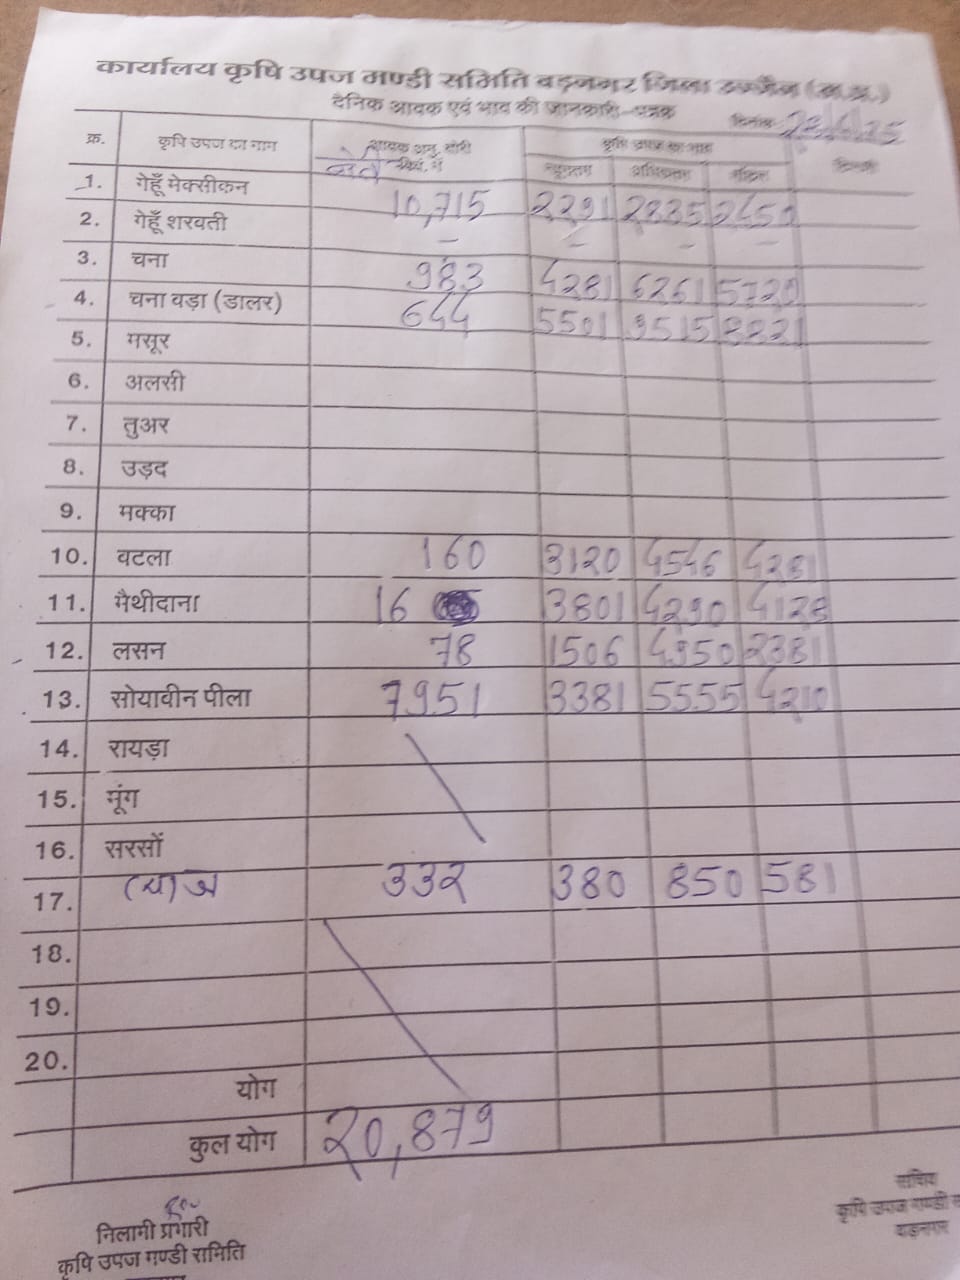 कार्यालय कृषि उपज मण्डी समिति बड़नगर जिला उज्जैन (म.प्र.)
दैनिक आवक एवं भाव की जानकारी-पत्रक
दिनांक
क्र. कृषि उपज का नाम आवक अनु. बोरी कृषि उपज का भाव
क्विं. में न्यूनतम अधिकतम मॉडल
1. गेहूँ मेक्सीकन 10,715 2291 2885 2450
2. गेहूँ शरवती - - - -
3. चना 983 4281 6261 5720
4. चना वड़ा (डालर) 644 5501 9515 8821
5. मसूर
6. अलसी
7. तुअर
8. उड़द
9. मक्का
10. वटला 160 3120 4546 4281
11. मैथीदाना 16 3801 4290 4128
12. लसन 78 1506 4950 2381
13. सोयावीन पीला 7951 3381 5555 4210
14. रायड़ा
15. मूंग
16. सरसों
17. प्याज 332 380 850 581
18.
19.
20.
योग
कुल योग 20,879
निलामी प्रभारी
कृषि उपज मण्डी समिति
सचिव
कृषि उपज मण्डी
बड़नगर